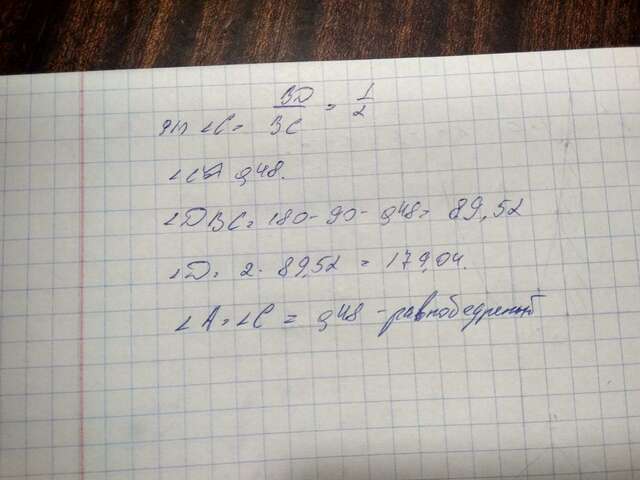 sin ∠C = BD/BC = 1/2
∠C = 0,48.
∠DBC = 180 - 90 - 0,48 = 89,52
∠D = 2 · 89,52 = 179,04.
∠A = ∠C = 0,48 - равнобедренный